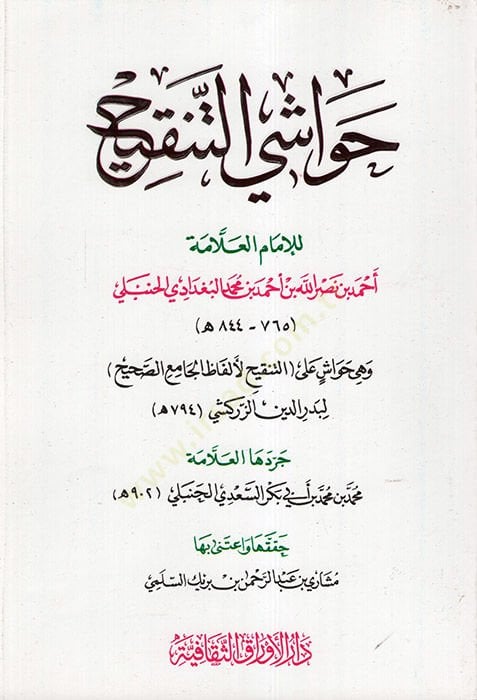 حَوَاشِي التَّنْقِيحِ
للإمام العلَّامة
أحمد بن نصر الله بن أحمد بن محمد البغدادي الحنبلي
(٧٦٥ - ٨٤٤ هـ)
وهي حواشٍ على (التنقيح لألفاظ الجامع الصحيح)
لبدر الدين الزركشي (٧٩٤ هـ)
جردها العلَّامة
محمد بن محمد بن أبي بكر السعدي الحنبلي (٩٠٢ هـ)
حققها واعتنى بها
مشاري بن عبد الرحمن بن بريك السلمي
دار الأوراق الثقافية